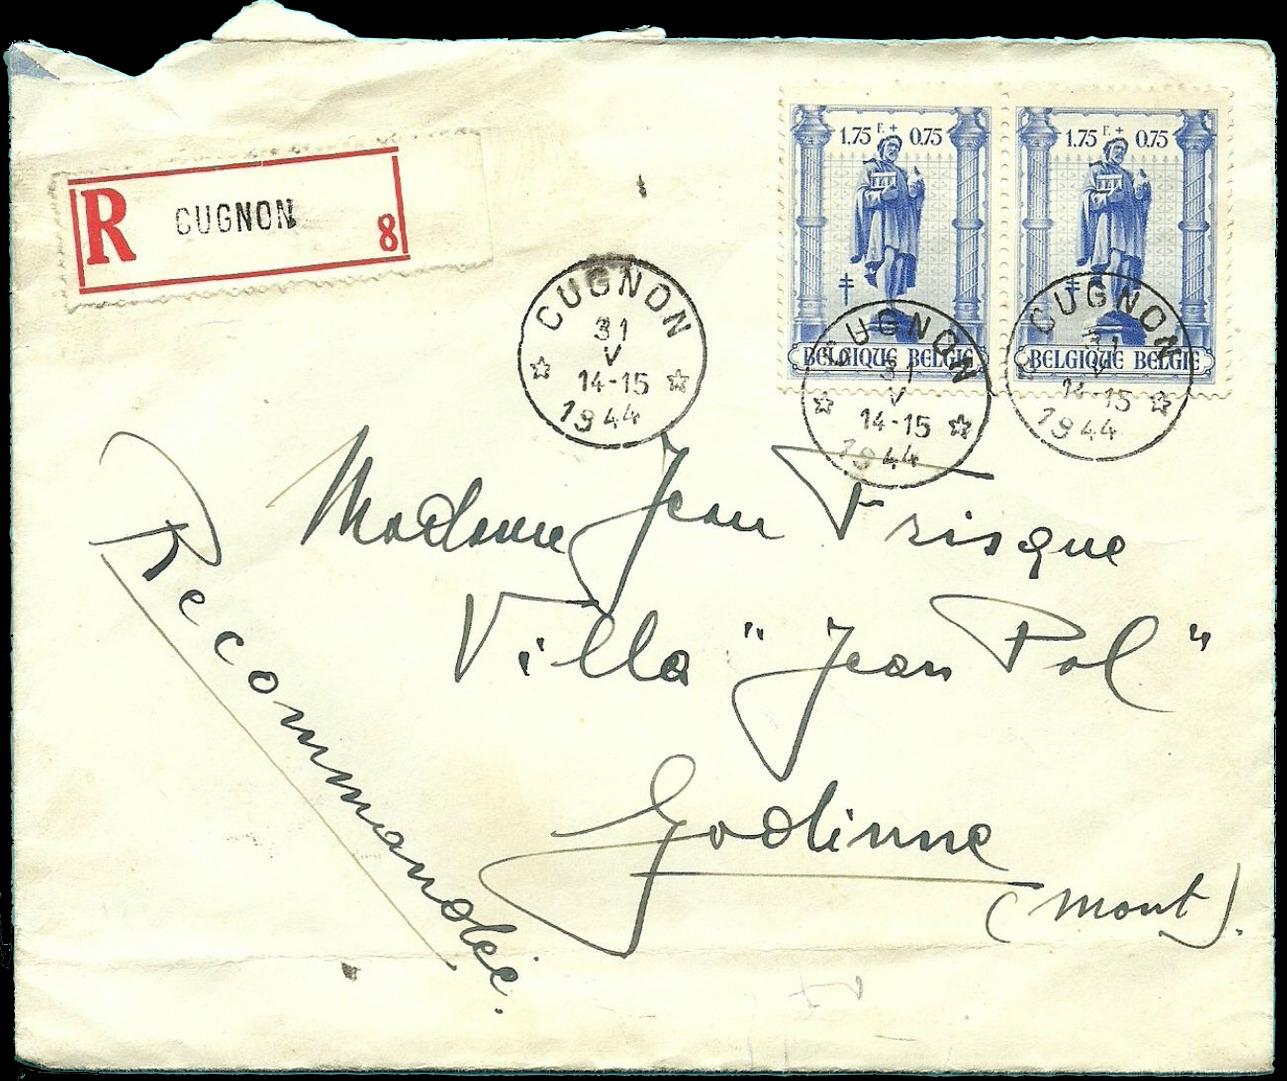 R CUGNON 8
1.75 F. + 0.75
BELGIQUE BELGIE
1.75 F. + 0.75
BELGIQUE BELGIE
CUGNON
31
V
14-15
1944
CUGNON
31
V
14-15
1944
CUGNON
31
V
14-15
1944
Madame Jean Frisque
Villa "Jean Pol"
Godinne
(Mont).
Recommandée.